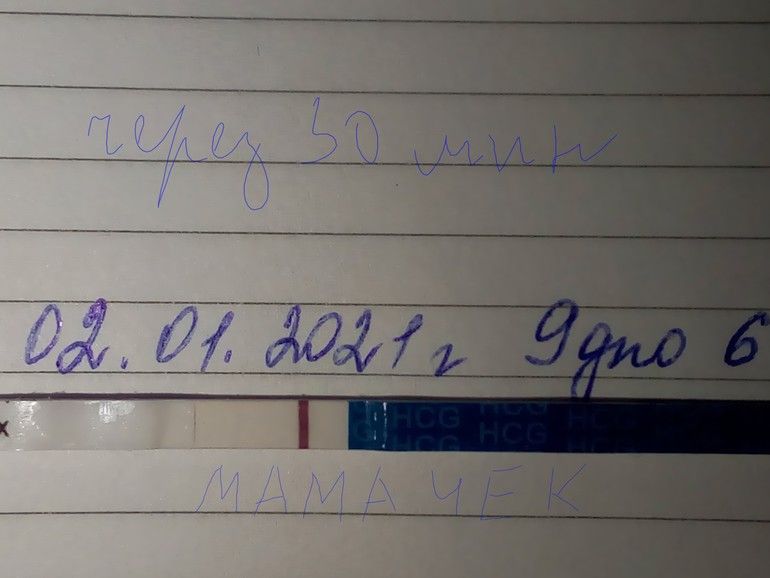 через 30 мин
02.01.2021 г 9 дпо 6
х
HCG HCG HCG
HCG HCG HCG
МАМА ЧЕК